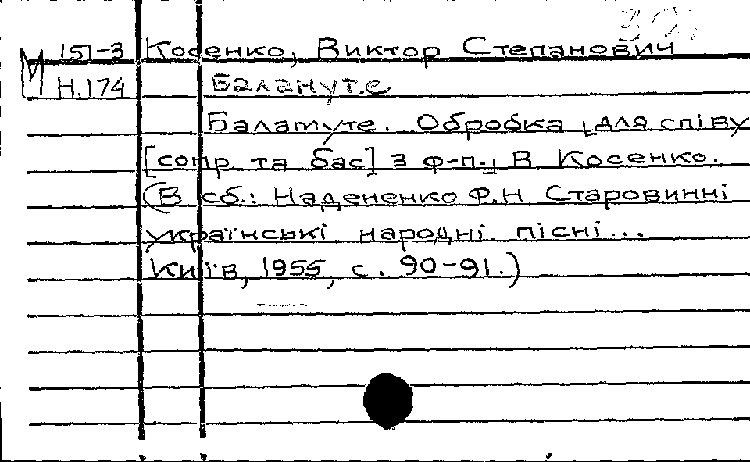 151-3 Косенко, Виктор Степанович
М Н.174 Баламуте
Баламуте. Обробка [для співу
[сопр. та бас] з ф-п.] В Косенко.
(В сб.: Надененко Ф.Н Старовинні
українські народні пісні...
Київ, 1955, с. 90-91.)